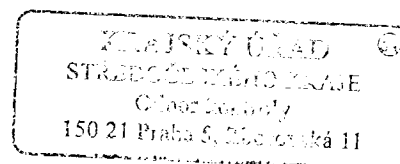 KRAJSKÝ ÚŘAD
STŘEDOČESKÉHO KRAJE
Odbor kontroly
150 21 Praha 5, Zborovská 11